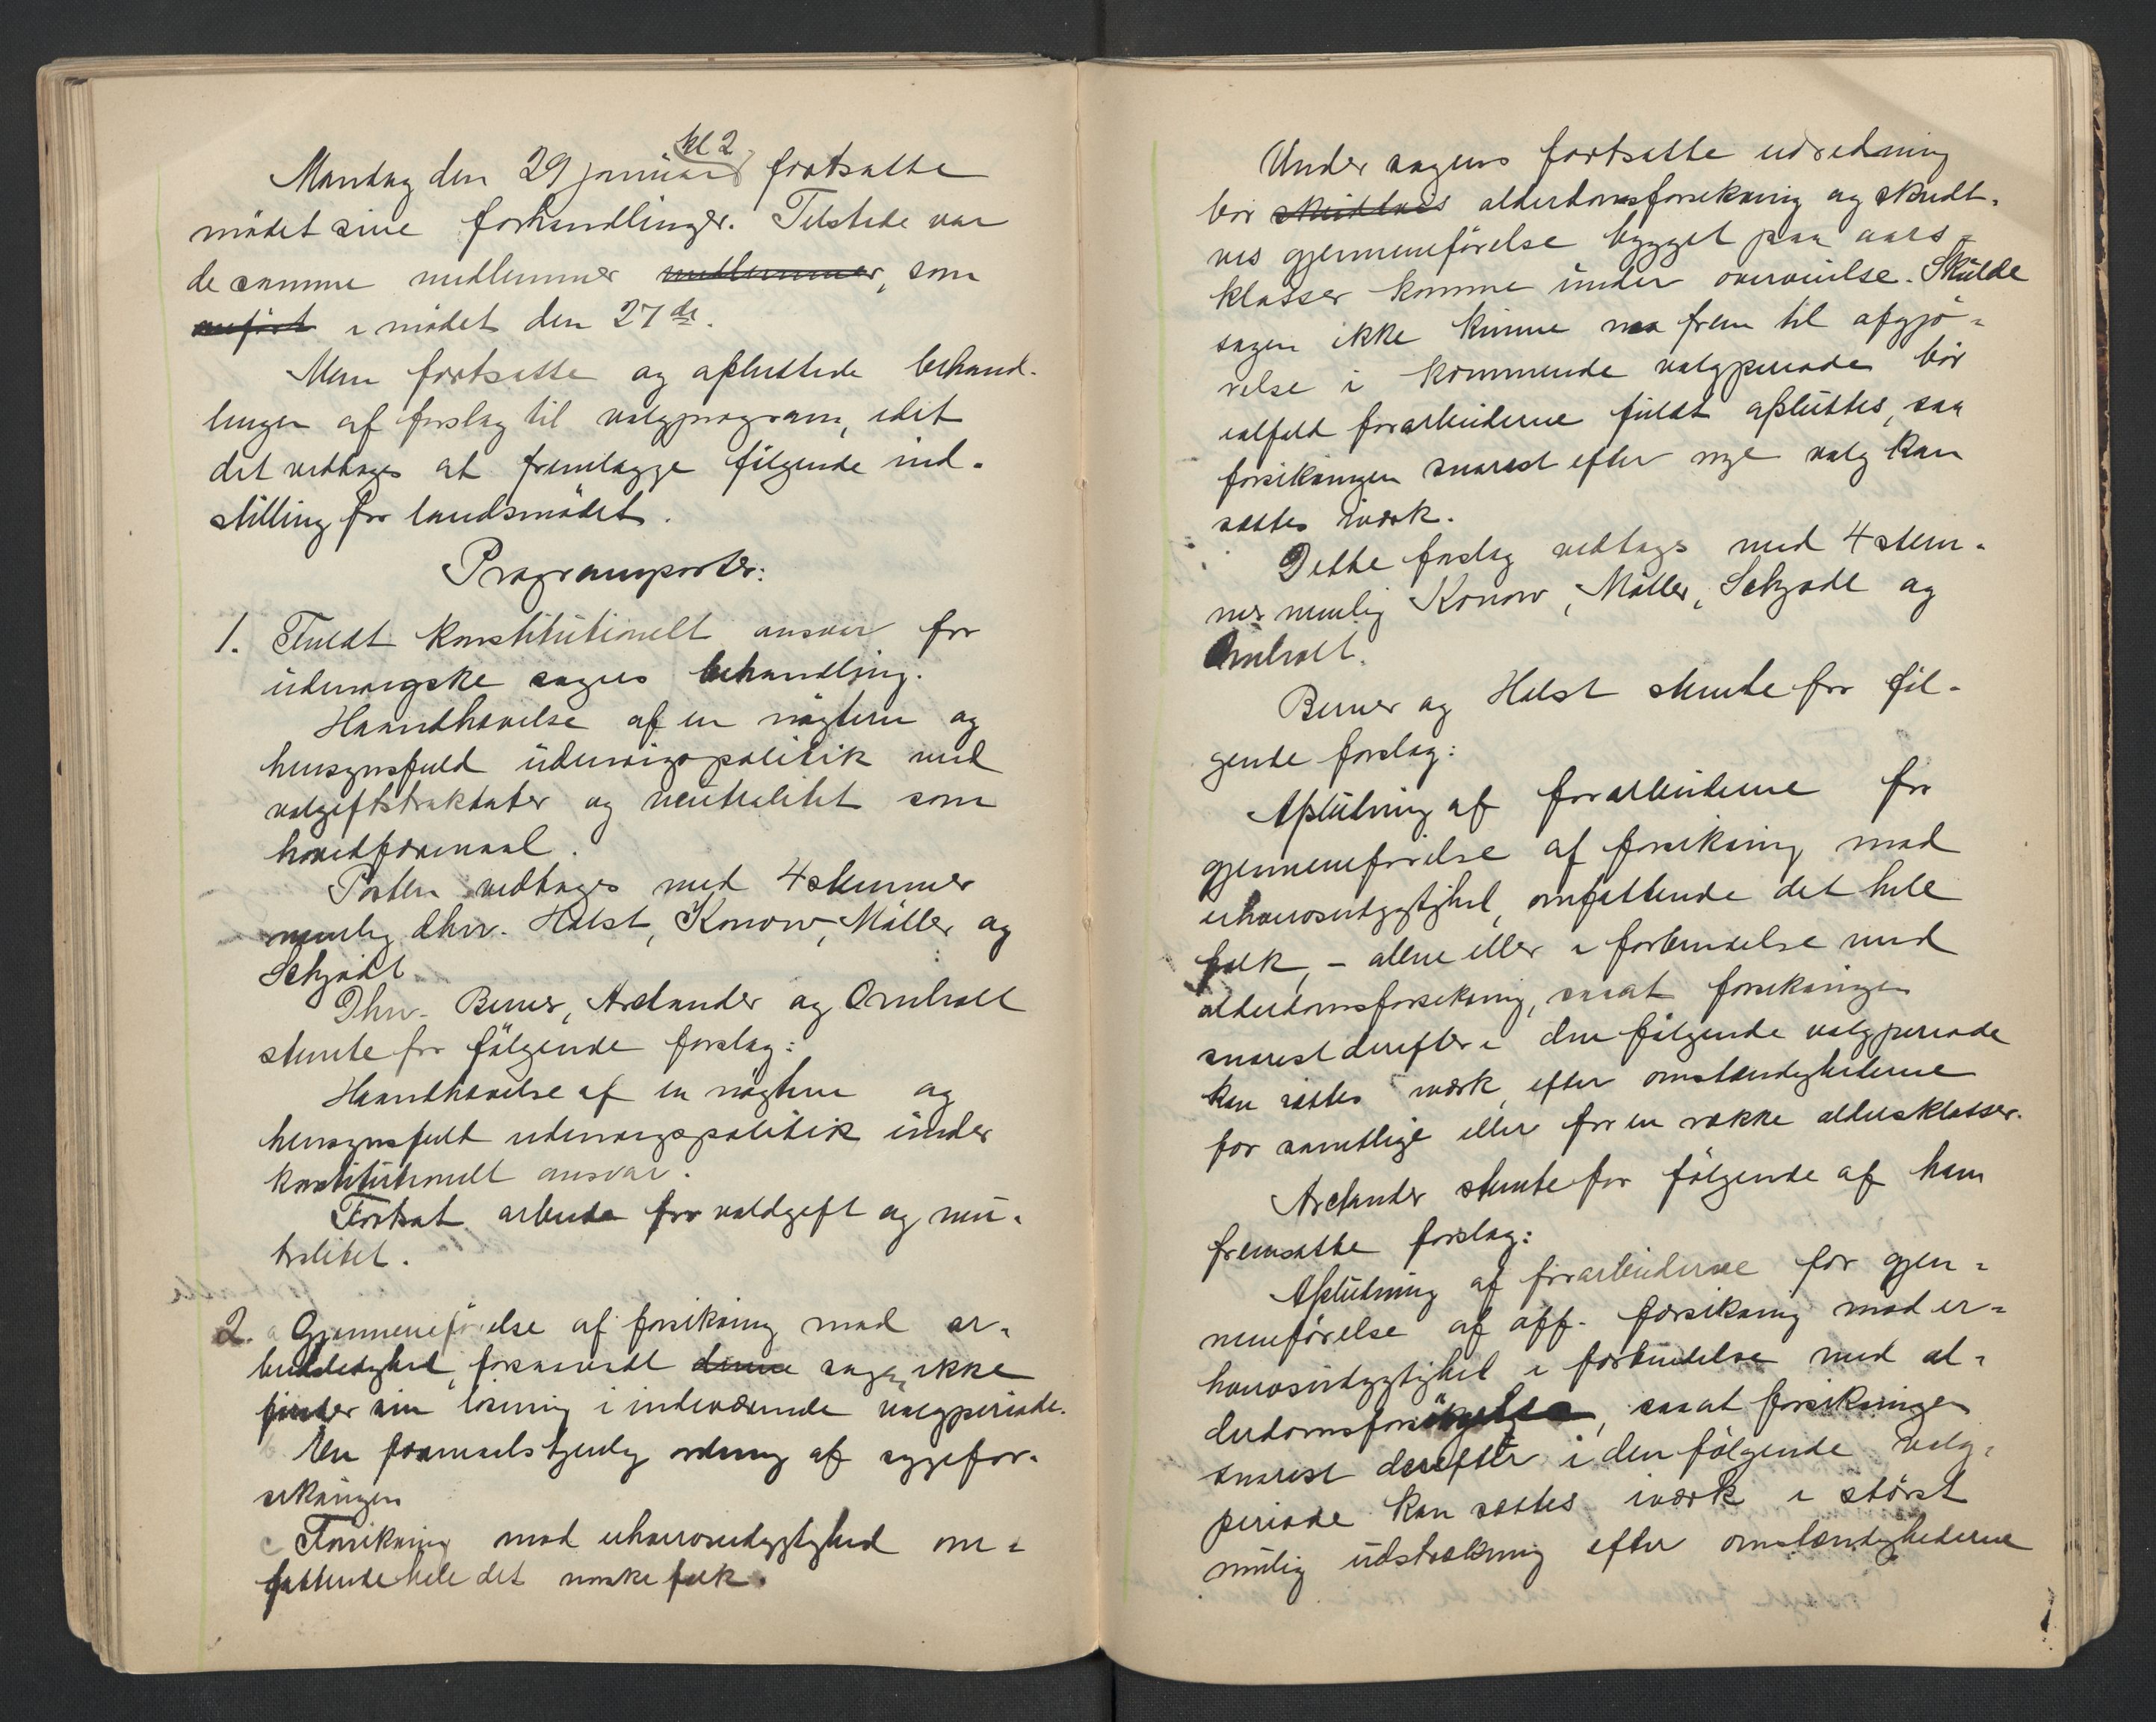 kl 2
Mandag den 29 januar fortsatte
mödet sine forhandlinger. Tilstede var
de samme medlemmer medlemmer, som
anfört i mödet den 27de.
Man fortsatte og afsluttede behand-
lingen af forslag til valgprogram, idet
det vedtoges at fremlægge fölgende ind-
stilling for landsmödet.
Programposter:
1. Fuldt konstitutionelt ansvar for
udenrigske sagers behandling.
Haandhævelse af en nögtern og
hensynsfuld udenrigspolitik med
voldgiftstraktater og neutralitet som
hovedformaal.
Posten vedtoges med 4 stemmer
nemlig dhrr. Holst, Konow, Möller og
Schjödt
Dhrr. Berner, Arctander og Omholt
stemte for fölgende forslag:
Haandhævelse af en nögtern og
hensynsfuld udenrigspolitik under
konstitutionelt ansvar.
Fortsat arbeide for voldgift og neu-
tralitet.
2. a Gjennemförelse af forsikring mod ar-
beidsledighed, forsaavidt denne sagen ikke
finder sin lösning i indeværende valgperiode.
b En formaalstjenlig ordning af sygefor-
sikringen
c Forsikring mod erhvervsudygtighed om-
fattende hele det norske folk.
Under sagens fortsatte udredning
bör skridtvis alderdomsforsikring og skridt-
vis gjennemförelse bygget paa aars-
klasser komme under overveielse. Skulde
sagen ikke kunne naa frem til afgjö-
relse i kommende valgperiode bör
ialfald forarbeiderne fuldt afsluttes, saa
forsikringen snarest efter nye valg kan
sættes iværk.
Dette forslag vedtoges med 4 stem-
mer nemlig Konow, Möller, Schjödt og
Omholt.
Berner og Holst stemte for föl-
gende forslag:
Afslutning af forarbeiderne for
gjennemförelse af forsikring mod
erhvervsudygtighed, omfattende det hele
folk, - alene eller i forbindelse med
alderdomsforsikring, saaat forsikringen
snarest derefter i den fölgende valgperiode
kan sættes iværk, efter omstændighederne
for samtlige eller for en række aldersklasser.
Arctander stemte for fölgende af ham
fremsatte forslag:
Afslutning af forarbeiderne for gjen-
nemförelse af off. forsikring mod er-
hvervsudygtighed i forbindelse med al-
derdomsforsörgelse, saaat forsikringen
snarest derefter i den fölgende valg-
periode kan sættes iværk i störst
mulig udstrækning efter omstændighederne